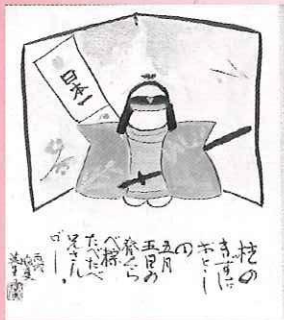 日本一
柱の
きずは
おとと
しの
五月
五日の
脊くら
べ粽
たべたべ
兄さん
が━